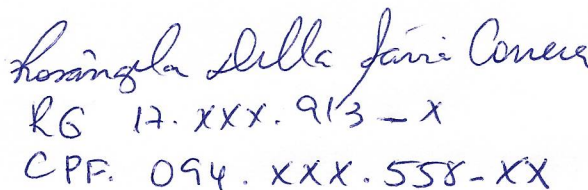 Rosângela Della Fávia Correa
RG 17.XXX.913-X
CPF. 094.XXX.558-XX